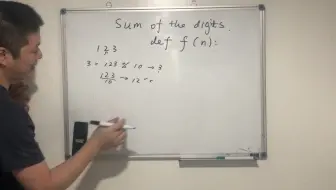 Sum of the digits.
def f(n):
1 2 3
3 = 123 % 10 → 3
123/10 → 12